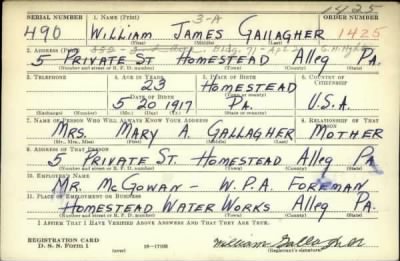 1425
SERIAL NUMBER 1. NAME (Print) 3-A ORDER NUMBER
490 WILLIAM JAMES GALLAGHER 1425
(First) (Middle) (Last)
2. ADDRESS (Print)
5 PRIVATE ST HOMESTEAD ALLEG PA.
(Number and street or R. F. D. number) (Town) (County) (State)
3. TELEPHONE 4. AGE IN YEARS 5. PLACE OF BIRTH 6. COUNTRY OF CITIZENSHIP
23 HOMESTEAD
DATE OF BIRTH (Town or county)
5 20 1917 PA. U.S.A.
(Mo.) (Day) (Yr.) (State or country)
7. NAME OF PERSON WHO WILL ALWAYS KNOW YOUR ADDRESS 8. RELATIONSHIP OF THAT PERSON
MRS. MARY A. GALLAGHER MOTHER
(Mr., Mrs., Miss) (First) (Middle) (Last)
9. ADDRESS OF THAT PERSON
5 PRIVATE ST. HOMESTEAD ALLEG PA
(Number and street or R. F. D. number) (Town) (County) (State)
10. EMPLOYER'S NAME
MR. McGOWAN - W.P.A. FOREMAN
11. PLACE OF EMPLOYMENT OR BUSINESS
HOMESTEAD WATER WORKS ALLEG PA.
(Number and street or R. F. D. number) (Town) (County) (State)
I AFFIRM THAT I HAVE VERIFIED ABOVE ANSWERS AND THAT THEY ARE TRUE.
REGISTRATION CARD
D. S. S. Form 1 (over) William Gallagher
(Registrant's signature)